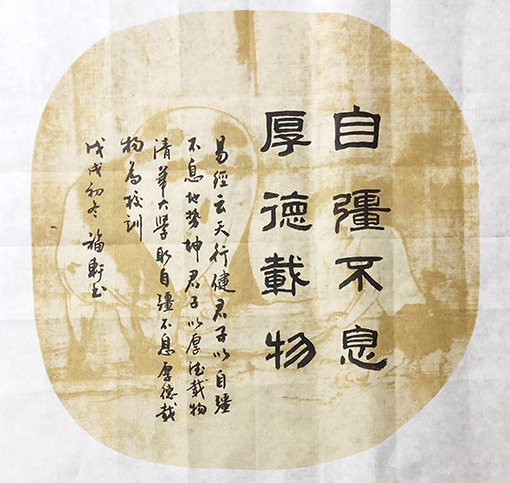 自彊不息
厚德載物
易經云天行健君子以自彊
不息地势坤君子以厚德載物
清華大學取自彊不息厚德載
物為校訓
戊戌初冬福軒书